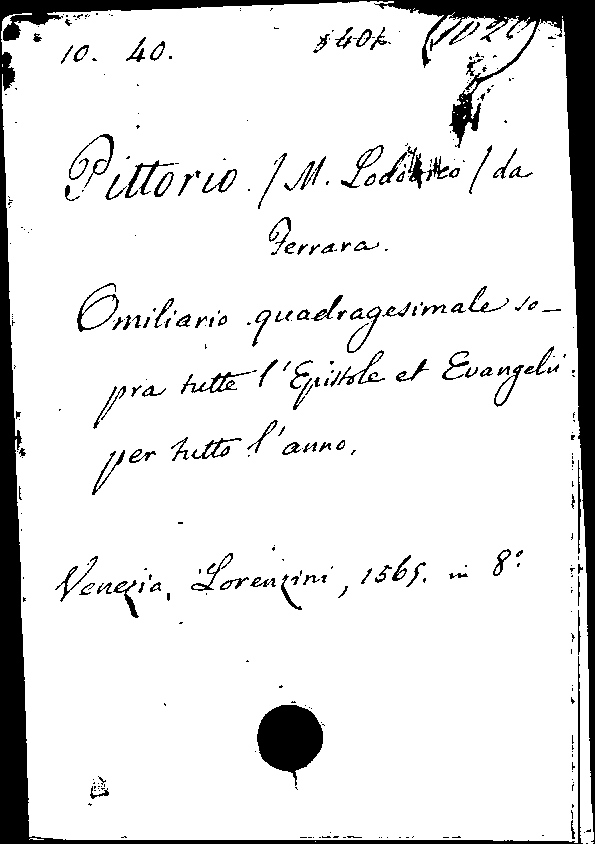 10. 40.
Pittorio. / M. Lodovico / da
Ferrara.
Omiliario quadragesimale so-
pra tutte l'Epistole et Evangelii
per tutto l'anno.
Venezia, Lorenzini, 1565. in 8°.